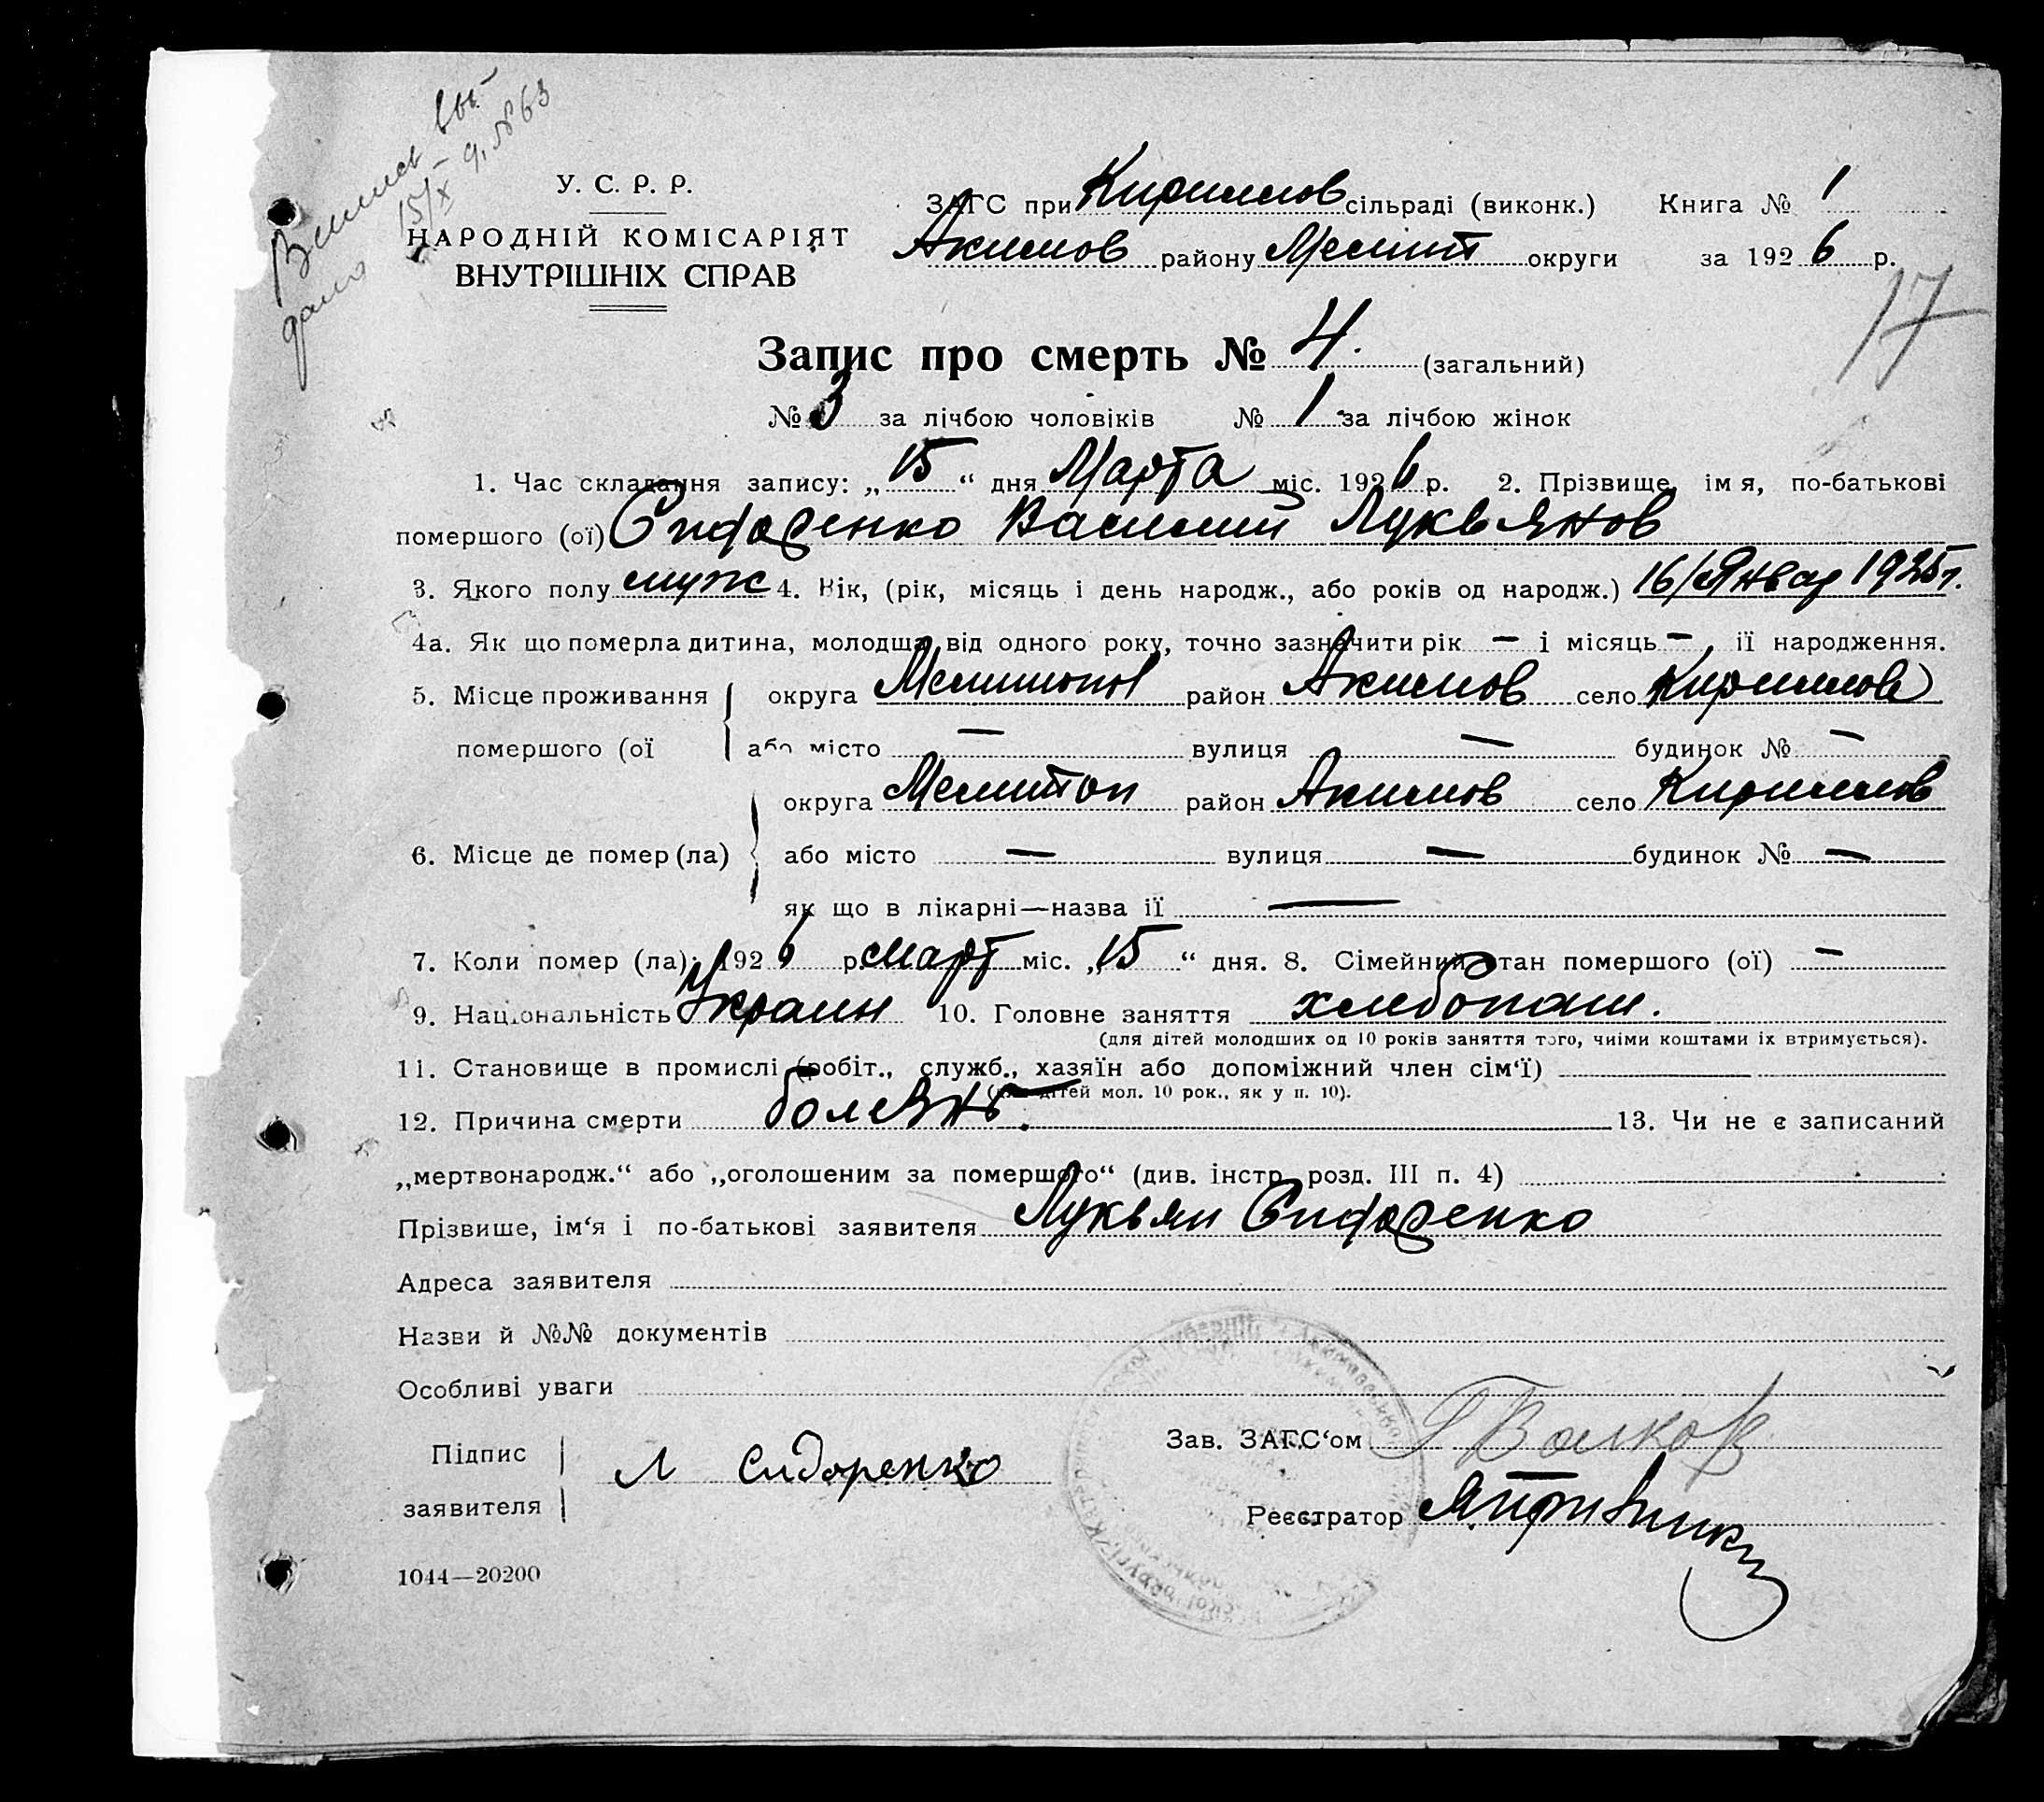 У. С. Р. Р.
НАРОДНІЙ КОМІСАРІЯТ
ВНУТРІШНІХ СПРАВ
15/X № 63
ЗАГС при Кирилов сільраді (виконк.) Книга № 1
Акимов району Мелит округи за 1926 р.
17
Запис про смерть № 4. (загальний)
№ 3 за лічбою чоловіків № 1 за лічбою жінок
1. Час складання запису: „15“ дня Марта міс. 1926 р. 2. Прізвище, ім я, по-батькові
помершого (ої) Сидоренко Василий Лукьянов
3. Якого полу муж 4. Вік, (рік, місяць і день народж., або років од народж.) 16/Январ 1925 г.
4а. Як що померла дитина, молодша від одного року, точно зазначити рік — і місяць —, її народження.
5. Місце проживання округа Мелитопол район Акимов село Кирилов
помершого (ої або місто — вулиця — будинок № —
округа Мелитоп район Акимов село Кирилов
6. Місце де помер (ла) або місто — вулиця — будинок № —
як що в лікарні—назва її —
7. Коли помер (ла): 1926 р. март міс. „15“ дня. 8. Сімейний стан помершого (ої) —
9. Національність Украин 10. Головне заняття хлебопаш.
(для дітей молодших од 10 років заняття того, чиїми коштами їх втримується).
11. Становище в промислі (робіт., служб., хазяїн або допоміжний член сім‘ї) —
(для дітей мол. 10 рок., як у п. 10).
12. Причина смерти болезнь. 13. Чи не є записаний
„мертвонародж.“ або „оголошеним за помершого“ (див. інстр. розд. III п. 4)
Прізвише, ім‘я і по-батькові заявителя Лукьян Сидоренко
Адреса заявителя
Назви й №№ документів
Особливі уваги
Підпис
заявителя Л Сидоренко
Зав. ЗАГС‘ом Волков
Реєстратор
1044—20200